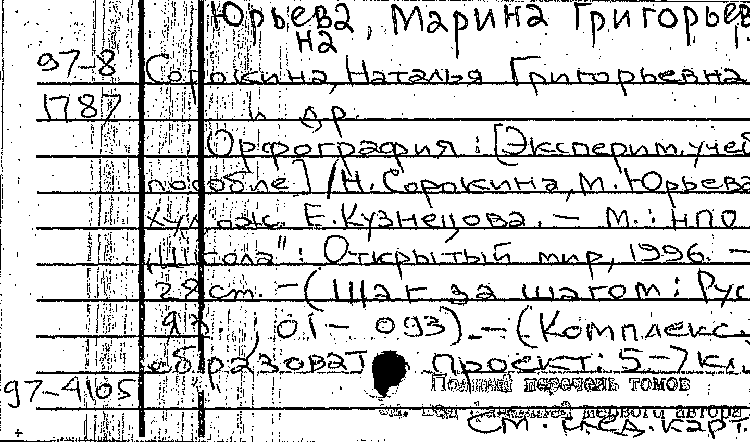 Юрьева, Марина Григорьев
на
97-8 Сорокина, Наталья Григорьевна
1787 и др.
Орфография : [Эксперим. учеб
пособие] / Н. Сорокина, М. Юрьева
худож. Е. Кузнецова. — М. : НПО
„Школа" : Открытый мир, 1996. —
29 см. — (Шаг за шагом : Рус
яз. ; 01-093). — (Комплекс.
образоват проект: 5-7 кл.
97-4105 Полный перечень томов
см. под фамилией первого автора
См. след. карт